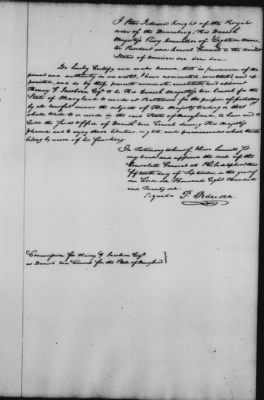 I Peter Pedersen Knight of the Royal
order of the Dannebrog, His Danish
Majesty's Privy Counsellor of Legation Minis-
ter Resident and Consul General to the United
States of America &c &c &c.
Do hereby Certify and make known, that in pursuance of the
power and authority in me vested, I have nominated, constituted and ap-
pointed, and do by these presents nominate, constitute and appoint
Henry G. Jacobsen Esqr to be His Danish Majesty's Vice Consul for the
State of Maryland to reside at Baltimore for the purpose of protecting
by all lawful means the subjects of His Majesty trading in that
State, to have and to
hold the said office of Danish Vice Consul during His Majesty's
pleasure and to enjoy those liberties, rights, and preeminences which there
belong by cause of his function.
In testimony whereof I have hereunto set
my hand and affixed the seal of the
Consulate General at Philadelphia this
day of September in the year of
our Lord One Thousand Eight Hundred
and Twenty six.
signed P. Pedersen
Commission for Henry G. Jacobsen Esqr
as Danish Vice Consul for the State of Maryland